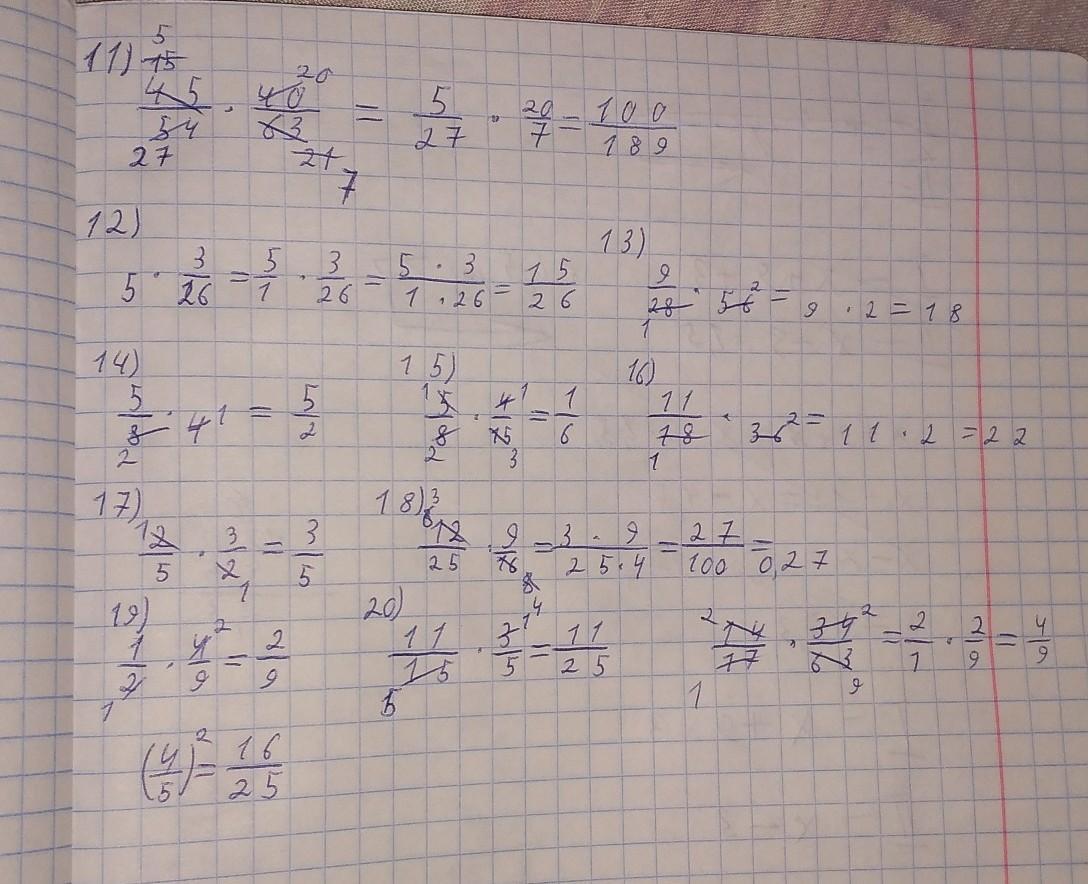 11) 5 15
45/54 · 40/63 = 5/27 · 20/7 = 100/189
27 20 21 7
12) 5 · 3/26 = 5/1 · 3/26 = 5 · 3/1 · 26 = 15/26
13) 9/28 · 56 = 9 · 2 = 18
1 2
14) 5/8 · 4 = 5/2
2 1
15) 5/8 · 4/15 = 1/6
1 2 1 3
16) 11/18 · 36 = 11 · 2 = 22
1 2
17) 2/5 · 3/2 = 3/5
1 1
18) 12/25 · 9/16 = 3 · 9/25 · 4 = 27/100 = 0,27
3 6 8 4
19) 1/2 · 4/9 = 2/9
1 2
20) 11/15 · 3/5 = 11/25
5 1
14/77 · 34/63 = 2/1 · 2/9 = 4/9
2 1 2 9
(4/5)² = 16/25